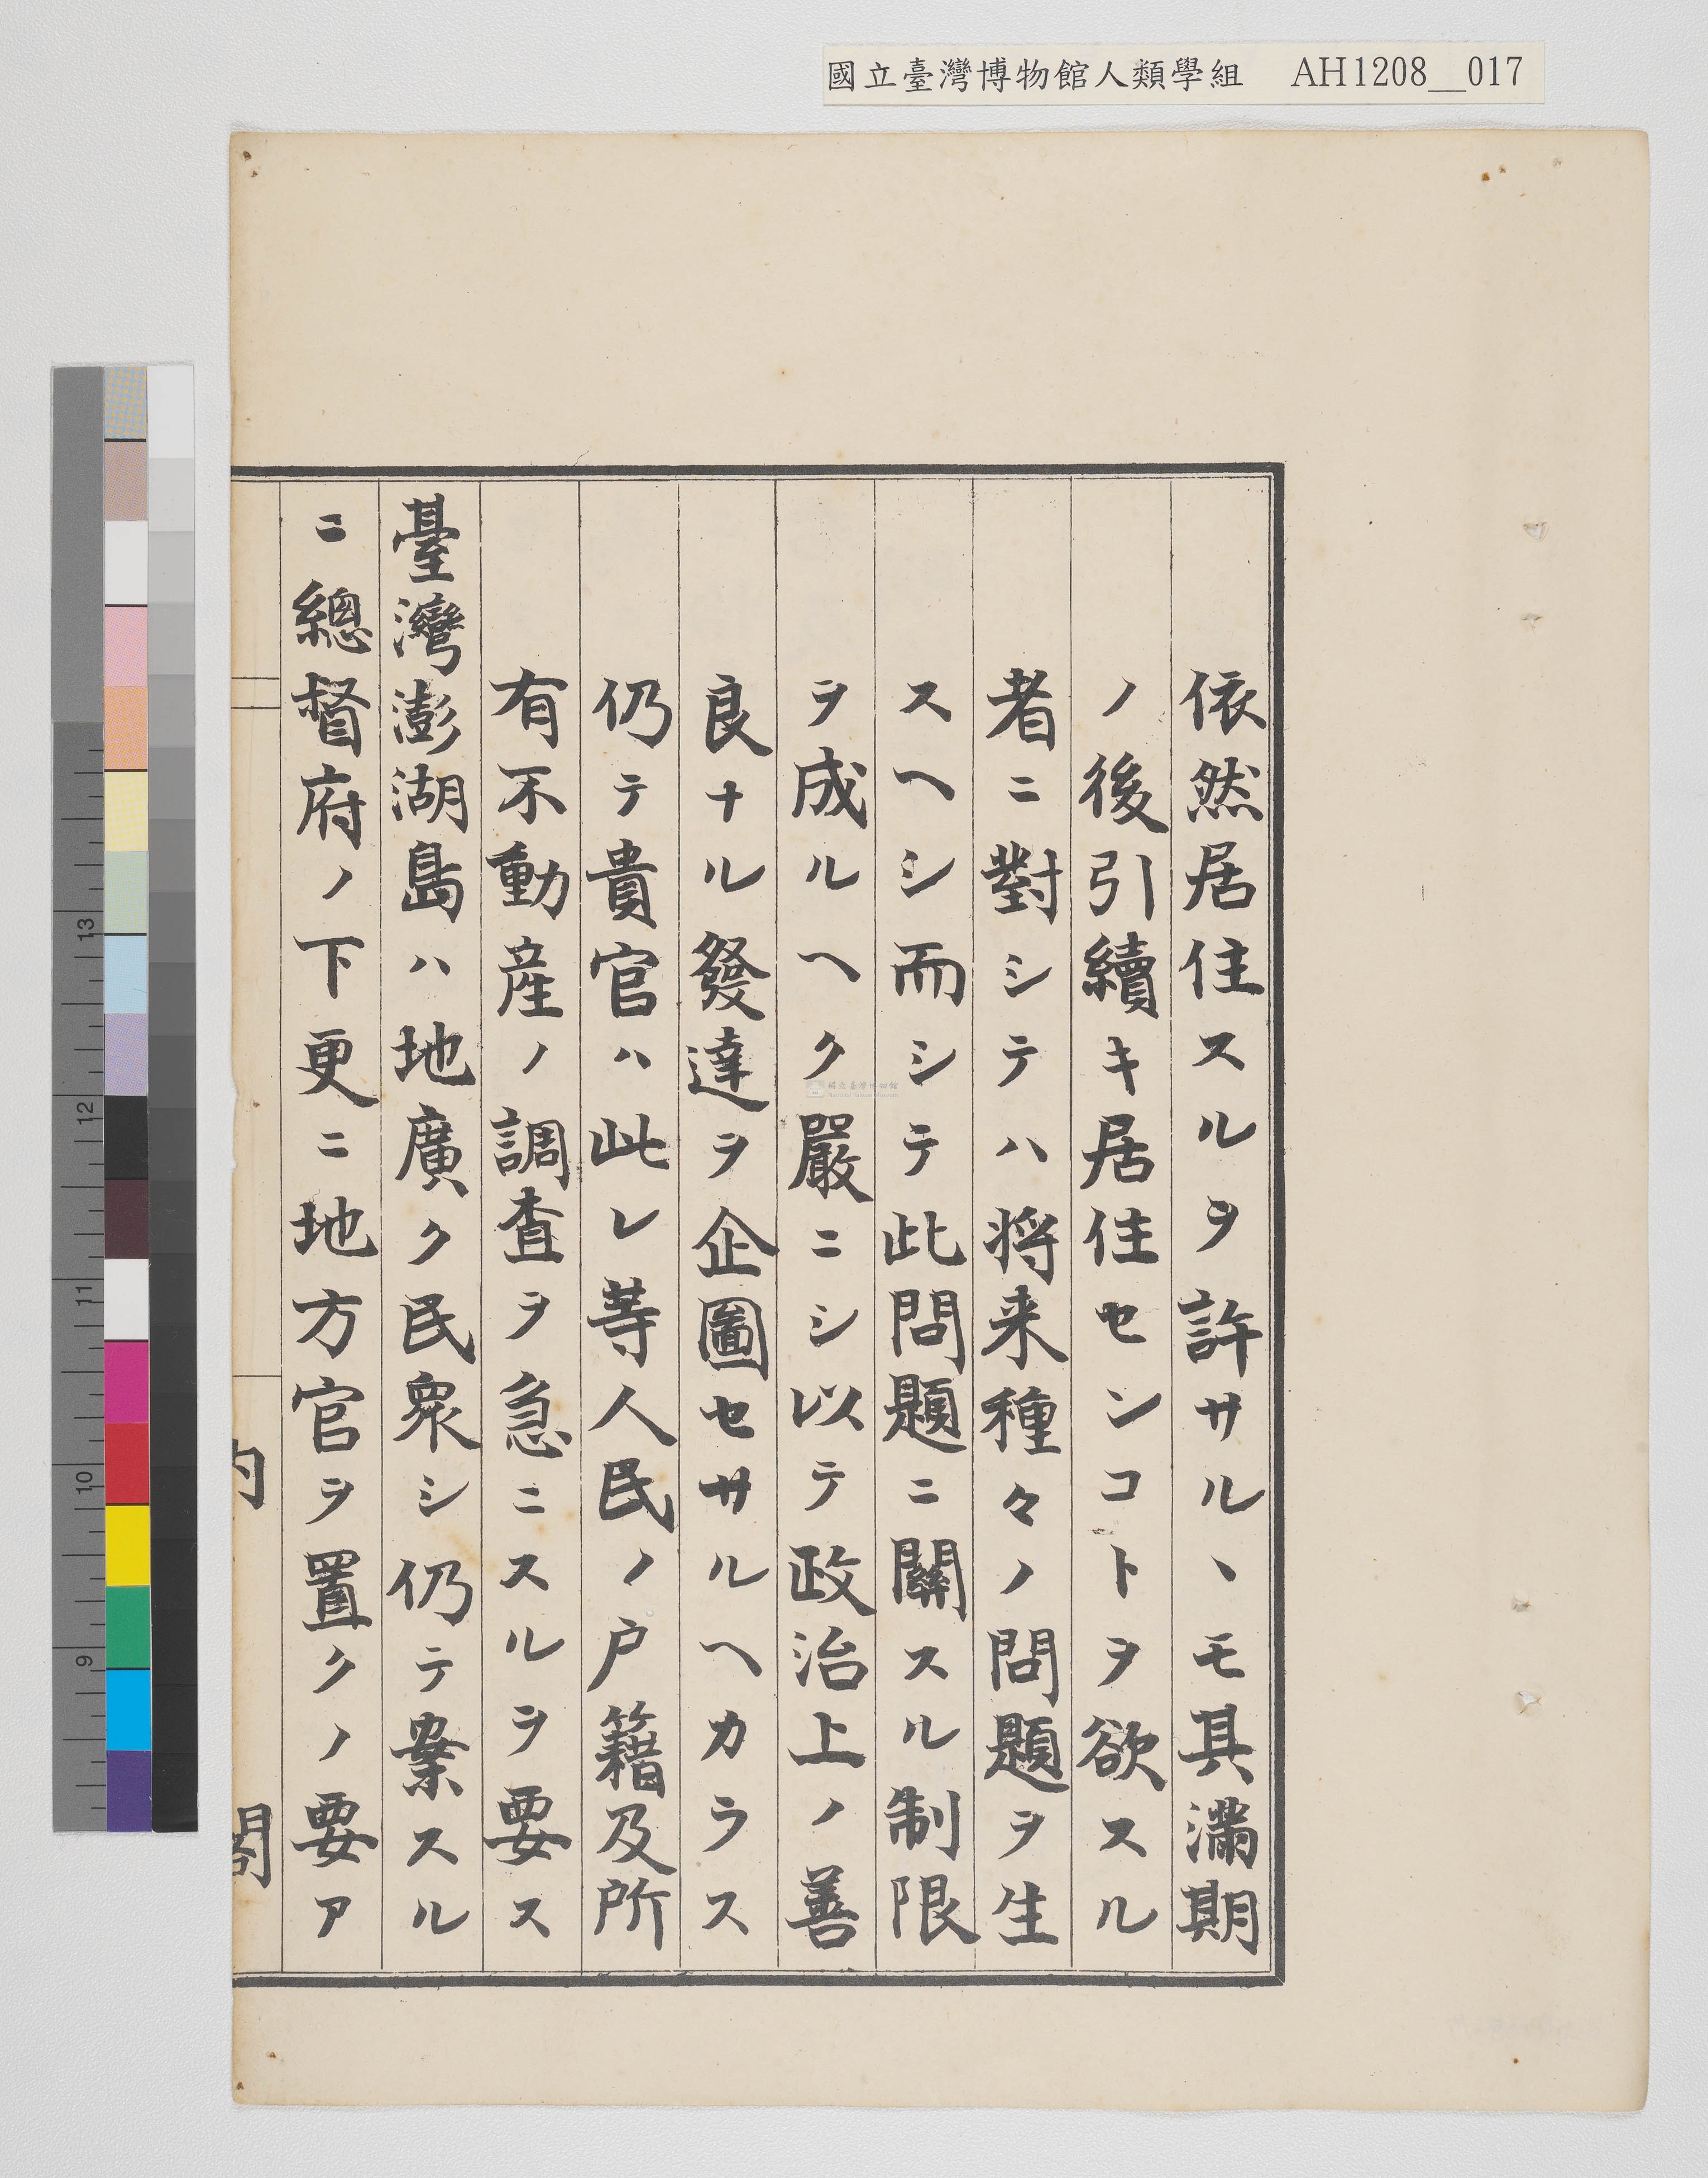 國立臺灣博物館人類學組 AH1208__017
依然居住スルヲ許サルヽモ其滿期
ノ後引續キ居住センコトヲ欲スル
者ニ對シテハ将来種々ノ問題ヲ生
スヘシ而シテ此問題ニ關スル制限
ヲ成ルヘク嚴ニシ以テ政治上ノ善
良ナル發達ヲ企圖セサルヘカラス
仍テ貴官ハ此レ等人民ノ戸籍及所
有不動産ノ調査ヲ急ニスルヲ要ス
臺灣澎湖島ハ地廣ク民衆シ仍テ案スル
ニ總督府ノ下更ニ地方官ヲ置クノ要ア
内閣
13
12
11
10
9